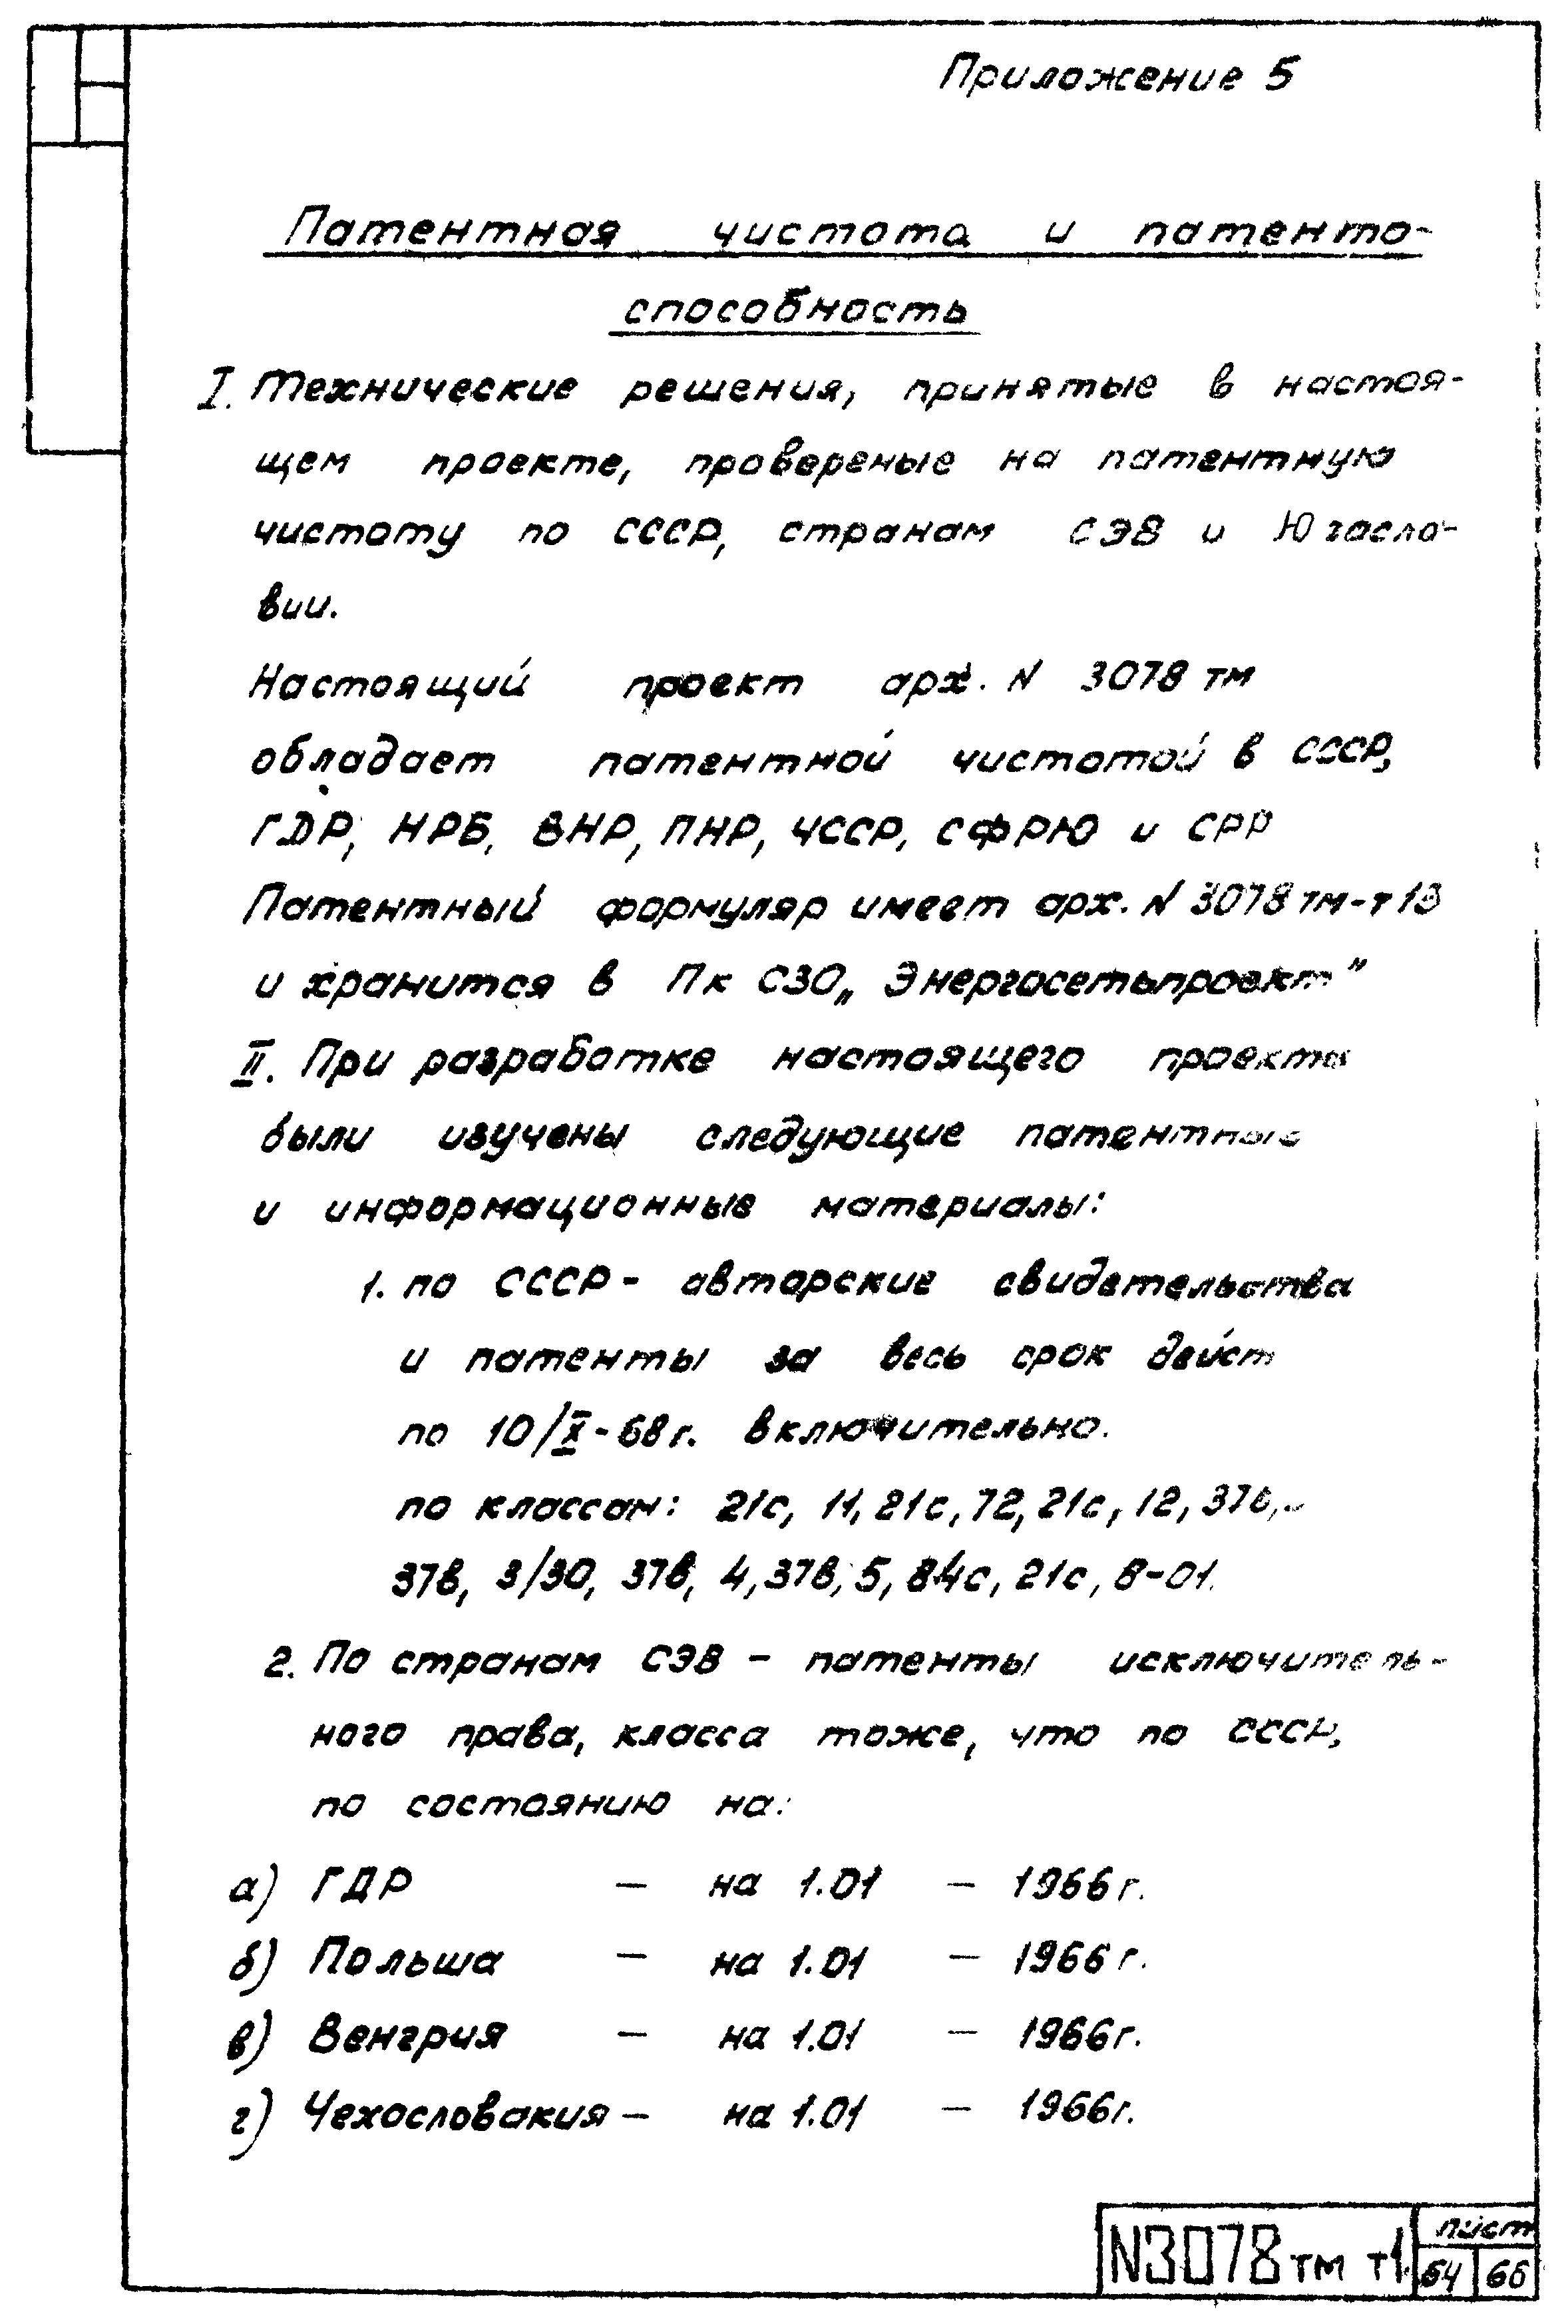 Приложение 5
Патентная чистота и патенто-
способность
I. Технические решения, принятые в настоя-
щем проекте, провереные на патентную
чистоту по СССР, странам СЭВ и Югасло-
вии.
Настоящий проект арх. N 3078 тм
обладает патентной чистотой в СССР,
ГДР, НРБ, ВНР, ПНР, ЧССР, СФРЮ и СРР
Патентный формуляр имеет арх. N 3078 тм-т13
и хранится в Пк СЗО „Энергосетьпроект"
II. При разработке настоящего проекта
были изучены следующие патентные
и информационные материалы:
1. по СССР - авторские свидетельства
и патенты за весь срок дейст
по 10/X-68 г. включительно.
по классам: 21с, 11, 21с, 72, 21с, 12,
37в, 3/30, 37в, 4, 37в, 5, 84с, 21с, 8-01.
2. По странам СЭВ - патенты исключитель-
ного права, класса тоже, что по СССР,
по состоянию на:
а) ГДР - на 1.01 - 1966 г.
б) Польша - на 1.01 - 1966 г.
в) Венгрия - на 1.01 - 1966 г.
г) Чехословакия - на 1.01 - 1966 г.
N3078 тм т1
лист
66